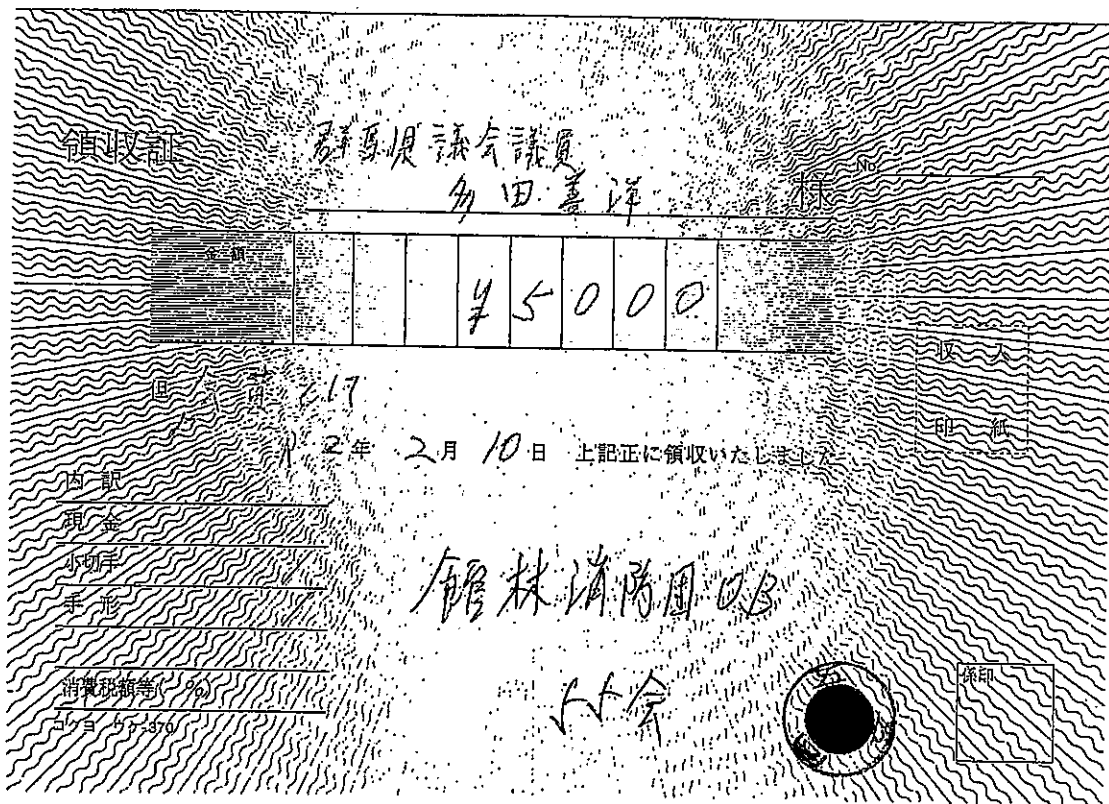 領収証
群馬県議会議員
多田善洋 様
No.
金額
¥5000
但 会費として
2年 2月 10日 上記正に領収いたしました
収入
印紙
内訳
現金
小切手
手形
消費税額等( %)
コクヨ ウケ-370
館林消防団OB
会
係印